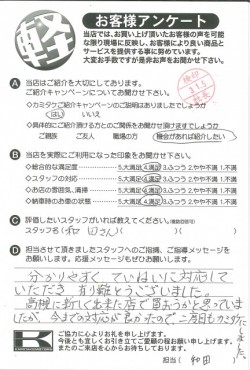 軽
お客様アンケート
当店では、お買い上げ頂いたお客様の声を可能な限り現場に反映し、お客様により良い商品と
サービスを提供する事に努めています。
大変お手数ですが是非お声をお聞かせ下さい。
A 当店はご紹介を大切にしてあります。
ご紹介キャンペーンについてお聞かせ下さい。
◇カミタケご紹介キャンペーンのご説明はありましたでしょうか
はい いいえ
◇具体的にご紹介頂ける方とのご関係をお聞かせ頂けますでしょうか
ご親族 ご友人 職場の方 機会があれば紹介したい
B 当店を実際にご利用になった印象をお聞かせ下さい。
◇総合的な満足度 5.大満足 4.満足 3.ふつう 2.やや不満 1.不満
◇スタッフの対応 5.大満足 4.満足 3.ふつう 2.やや不満 1.不満
◇お店の雰囲気、清掃 5.大満足 4.満足 3.ふつう 2.やや不満 1.不満
◇納車時のお車の状態 5.大満足 4.満足 3.ふつう 2.やや不満 1.不満
C 評価したいスタッフがいれば教えてください。(複数回答可)
スタッフ名( 和田さん )
D 担当させて頂きましたスタッフへのご指摘、ご指導メッセージを
お願いします。応援メッセージもぜひお願いします。
分かりやすく ていねいに対応して
いただき 有り難とうございました。
高槻に新しく出来た店で買おうかと思っていま
したが、今までの対応が良かったので二度目もカミタケにしました。
K
ご協力に心よりお礼を申し上げます。
今後とも宜しくお引き立てご愛顧の程お願い申し上げます。
またのご来店を心からお待ちしております。
担当( 和田 )